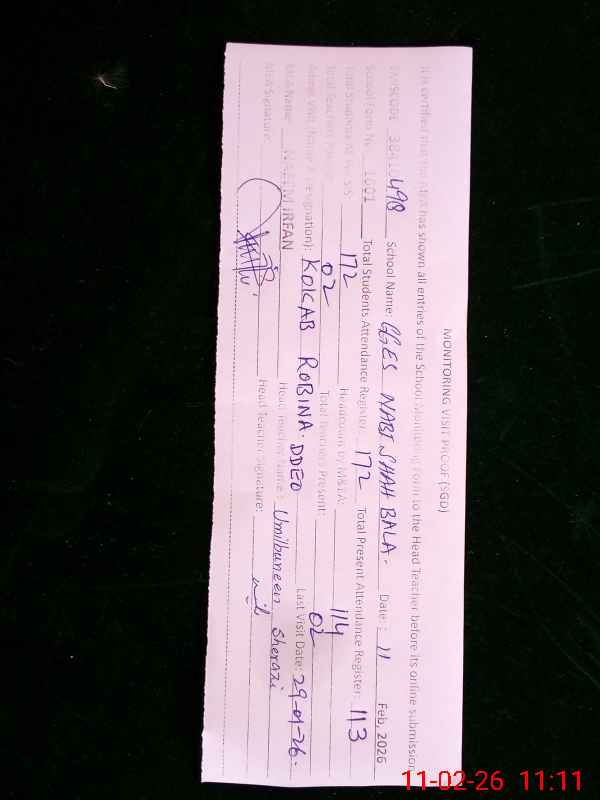 MONITORING VISIT PROOF (SGD)
It is certified that the MEA has shown all entries of the School Monitoring Form to the Head Teacher before its online submission
EMISCODE 38410498 School Name: GGES NABI SHAH BALA. Date: 11 Feb, 2026
School Form No 1001 Total Students Attendance Register: 172 Total Present Attendance Register: 113
Total Students 172 Headcount by MEA: 114
Total Teachers 02 Total Teachers Present: 02
Admin Visit (Name & Designation): KOKAB ROBINA. DDEO Last Visit Date: 29-01-26.
MEA Name: IRFAN Head Teacher Name: Umilbuneen Sherazi
MEA Signature: Head Teacher Signature:
11-02-26 11:11